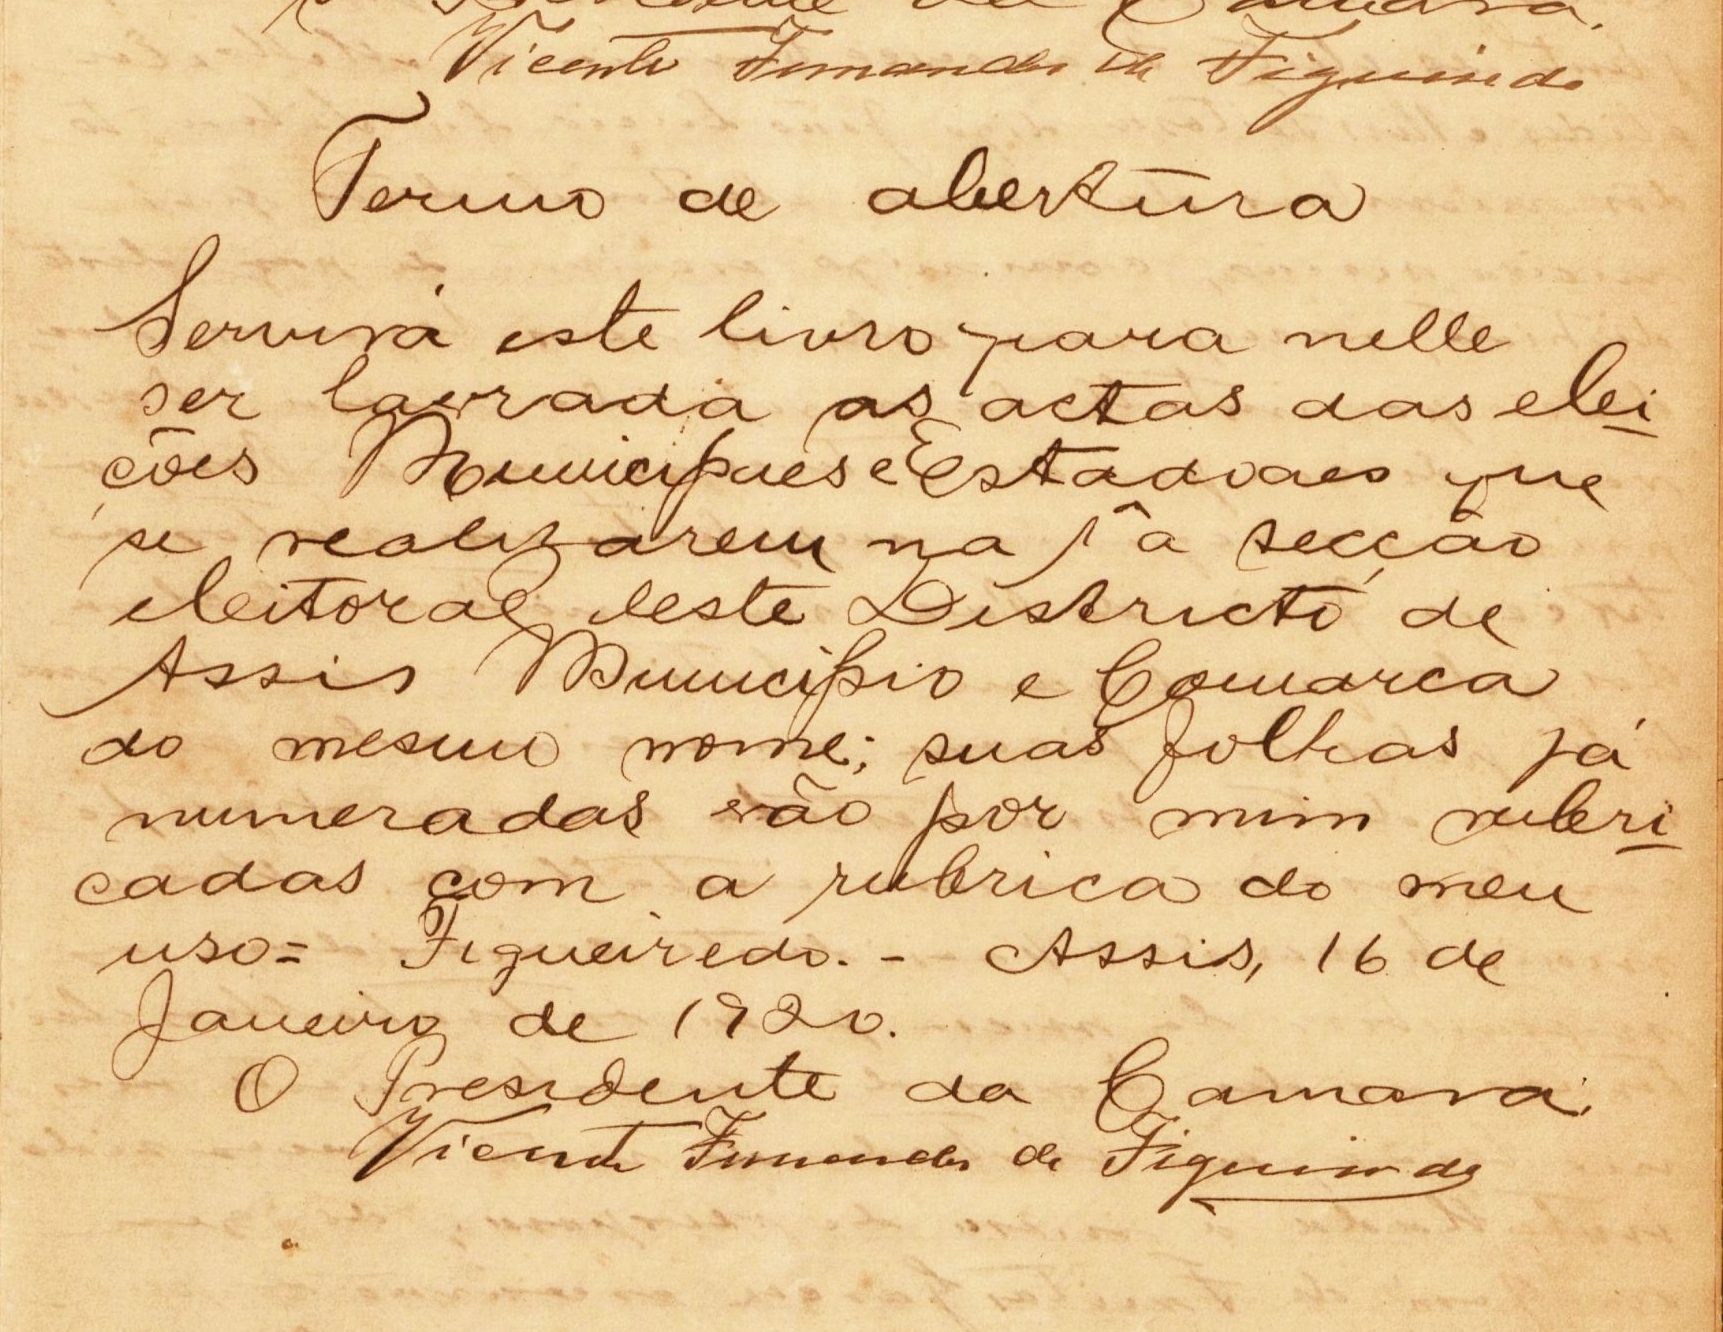 Presidente da Camara.
Vicente Fernandes de Figueiredo
Termo de abertura
Servirá este livro para nelle
ser lavrada as actas das elei
ções Municipaes e Estadoaes que
se realizarem na 1ª secção
eleitoral deste Districto de
Assis Municipio e Comarca
do mesmo nome; suas folhas já
numeradas vão por mim rubri
cadas com a rubrica do meu
uso= Figueiredo. - Assis, 16 de
Janeiro de 1920.
O Presidente da Camara.
Vicente Fernandes de Figueiredo